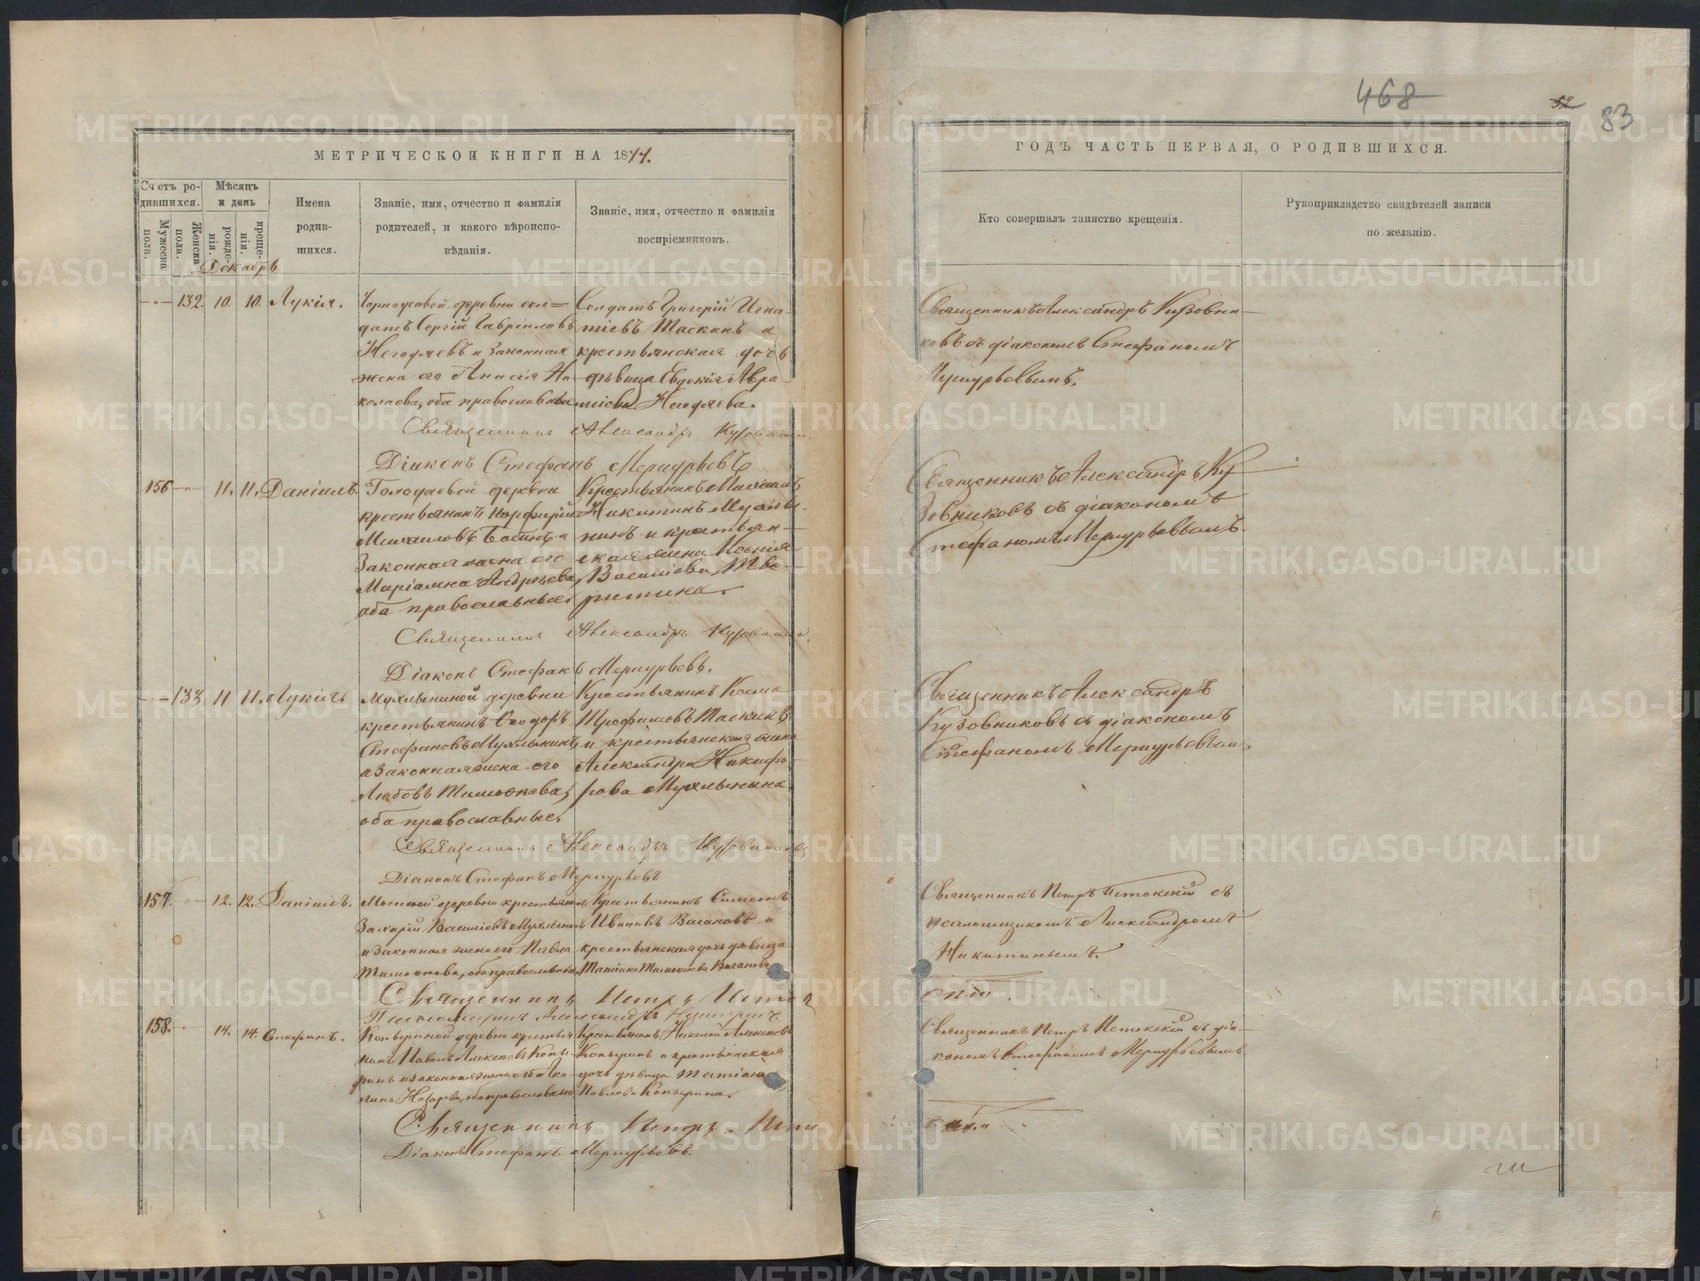 468
52
83
МЕТРИЧЕСКОЙ КНИГИ НА 1877.
ГОДЪ ЧАСТЬ ПЕРВАЯ, О РОДИВШИХСЯ.
Счетъ родившихся.
Мужеска пола.
Женска пола.
Мѣсяцъ и день
рожденія.
крещенія.
Имена родившихся.
Званіе, имя, отчество и фамилія
родителей, и какого вѣроиспо-
вѣданія.
Званіе, имя, отчество и фамилія
воспріемниковъ.
Кто совершалъ таинство крещенія.
Рукоприкладство свидѣтелей записи
по желанію.
Декабрь
132. 10. 10. Лукія.
деревни сол=
датъ Сергій Гавріиловъ
Негодяевъ и законная
жена его Анисія Ни-
колаева, оба православные
Солдатъ Григорій Игна-
тіевъ Таскинъ и
крестьянская дочь
дѣвица Евдокія Авра-
міева Негодяева.
Священникъ Александръ Кузовниковъ
Діаконъ Стефанъ Меркурьевъ
Священникъ Александръ Кузовни-
ковъ съ діакономъ Стефаномъ
Меркурьевымъ.
156 11. 11. Даніилъ.
Голодаевой деревни
крестьянинъ Порфирій
Михаиловъ и
законная жена его
Маріамна Андреева,
оба православные.
Крестьянинъ Михаилъ
Никитинъ
и крестьян-
ская жена
Василіева
Священникъ Александръ Кузовниковъ
Діаконъ Стефанъ Меркурьевъ.
Священникъ Александръ Ку-
зовниковъ съ діакономъ
Стефаномъ Меркурьевымъ.
133. 11 11. Лукія
Мухлыниной деревни
крестьянинъ Ѳеодоръ
Стефановъ Мухлынинъ
и законная жена его
Любовь Тимоѳеева,
оба православные.
Крестьянинъ Косма
Трофимовъ Таскинъ
и крестьянская жена
Александра Никифо-
рова Мухлынина.
Священникъ Александръ Кузовниковъ
Діаконъ Стефанъ Меркурьевъ
Священникъ Александръ
Кузовниковъ съ діакономъ
Стефаномъ Меркурьевымъ.
157. 12. 12. Даніилъ.
деревни крестьянинъ
Захарій Василіевъ Мухлынинъ
и законная жена его Павла
Тимоѳеева, оба православные
Крестьянинъ Симеонъ
Ивановъ Вагановъ и
крестьянская дочь дѣвица
Татіана Тимоѳеева Ваганова
Священникъ Петръ
Псаломщикъ Александръ Никитинъ
Священникъ Петръ Истокскій съ
псаломщикомъ Александромъ
Никитинымъ.
158. 14. 14. Стефанъ.
Копыриной деревни крестья-
нинъ Павелъ Алексѣевъ Копы-
ринъ и законная жена его Аки-
лина Назарова, оба православные
Крестьянинъ Николай Алексѣевъ
Копыринъ и крестьянская
дочь дѣвица Татіана
Павлова Копырина.
Священникъ Петръ
Діаконъ Стефанъ Меркурьевъ.
Священникъ Петръ Истокскій съ діа-
кономъ Стефаномъ Меркурьевымъ
METRIKI.GASO-URAL.RU